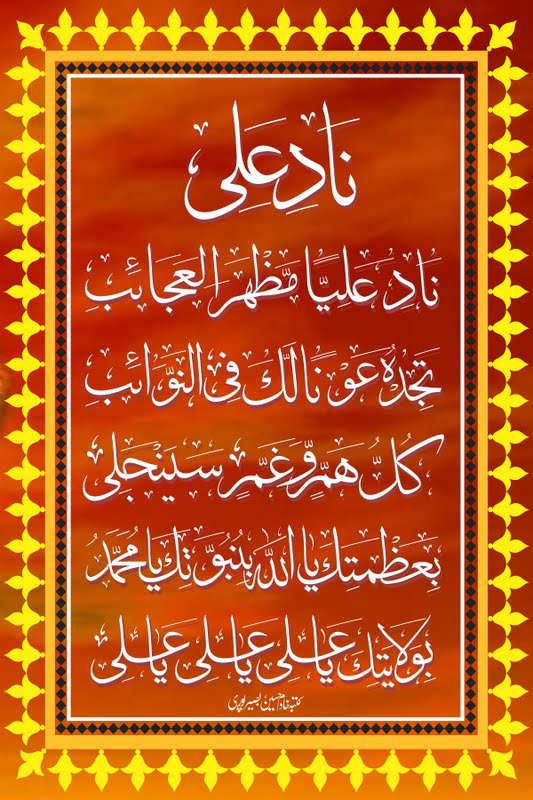 نَادِ عَلِی
نَادِ عَلِيًّا مَّظْهَرَ الْعَجَائِبِ
تَجِدْهُ عَوْنًا لَّكَ فِی النَّوَائِبِ
كُلُّ هَمٍّ وَّغَمٍّ سَيَنْجَلِی
بِعَظْمَتِكَ يَا اَللّٰهُ بِنُبُوَّتِكَ يَا مُحَمَّدُ
بِوِلَايَتِكَ يَا عَلِی يَا عَلِی يَا عَلِی
کتبہ خادم حسین بصیرپوری